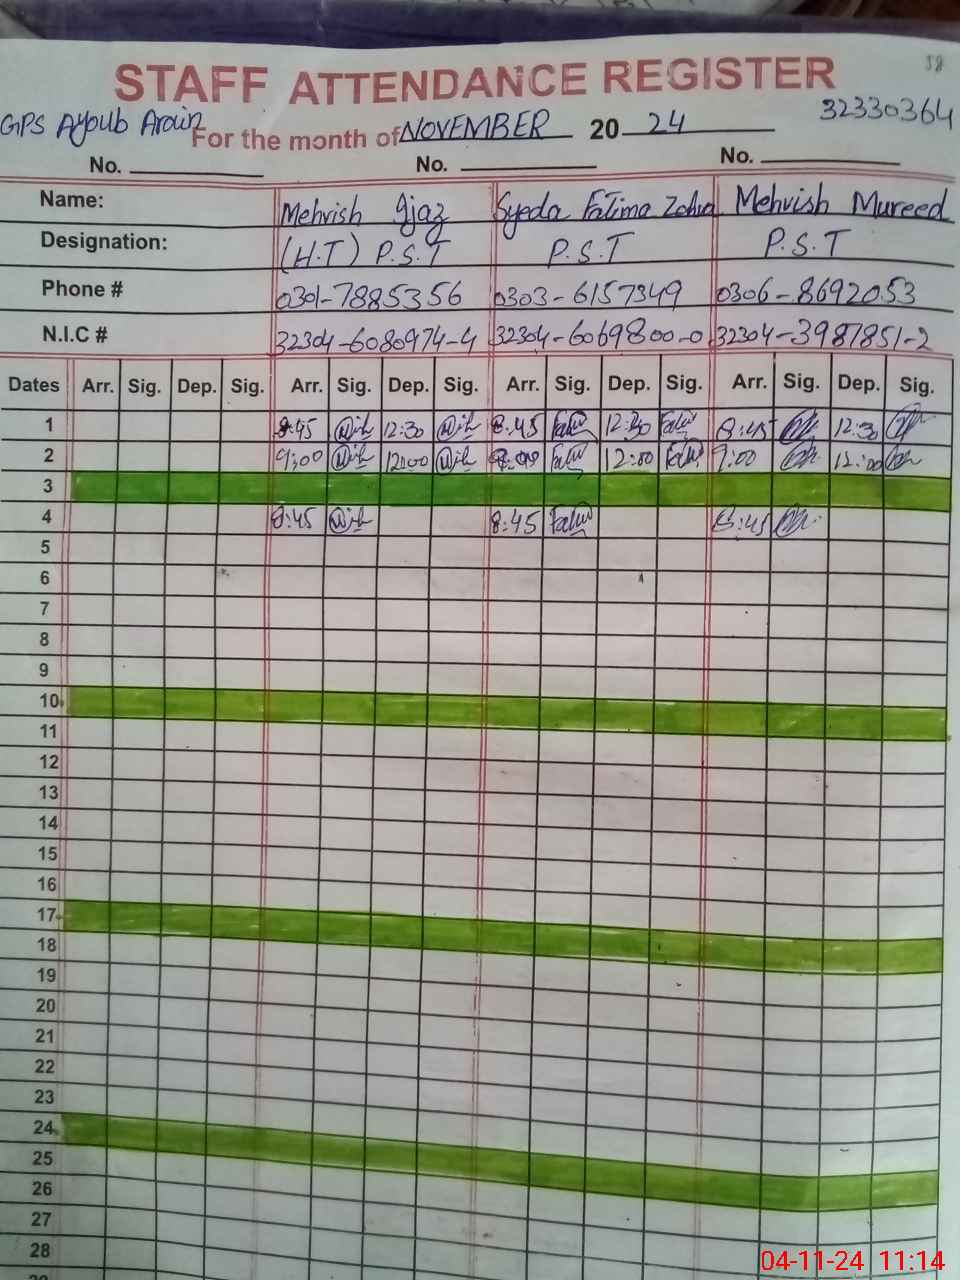 38
STAFF ATTENDANCE REGISTER
GPS Ayoub Arain For the month of NOVEMBER 20 24 32330364
No. No. No.
Name: Mehvish Ijaz Syeda Fatima Zahra Mehvish Mureed
Designation: (H.T) P.S.T P.S.T P.S.T
Phone # 0301-7885356 0303-6157349 0306-8692053
N.I.C # 32304-6080974-4 32304-6069800-0 32304-3987851-2
Dates Arr. Sig. Dep. Sig. Arr. Sig. Dep. Sig. Arr. Sig. Dep. Sig. Arr. Sig. Dep. Sig.
1 8:45 12:30 8:45 12:30 8:45 12:30
2 9:00 12:00 9:00 12:00 9:00 12:00
3
4 8:45 8:45 8:45
5
6
7
8
9
10
11
12
13
14
15
16
17
18
19
20
21
22
23
24
25
26
27
28
04-11-24 11:14